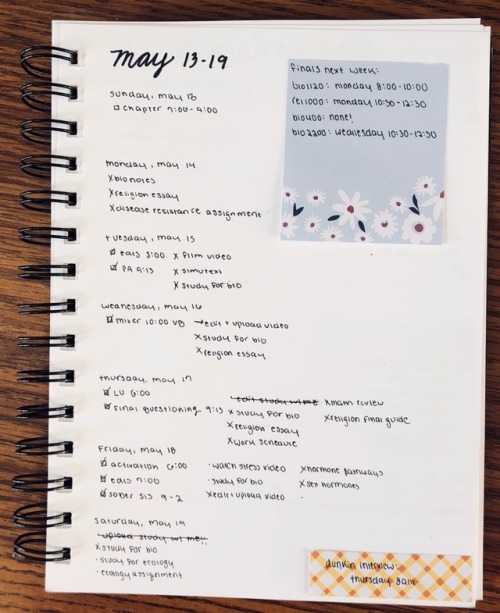 may 13-19
finals next week:
bio1120: monday 8:00-10:00
rel1000: monday 10:30-12:30
bio400: none!
bio2200: wednesday 10:30-12:30
sunday, may 13
chapter 7:00-9:00
monday, may 14
x bio notes
x religion essay
x disease resistance assignment
tuesday, may 15
eats 5:00 x film video
PA 9:15 x simutext
x study for bio
wednesday, may 16
mixer 10:00 →edit + upload video
x study for bio
x religion essay
thursday, may 17
LU 6:00 edit study w/ me x math review
final questioning 9:15 x study for bio x religion final guide
x religion essay
x work schedule
friday, may 18
activation 6:00 · watch stress video x hormone pathways
eats 7:00 · study for bio x sex hormones
sober sis 9-2 x edit + upload video ·
saturday, may 19
· upload study w/ me!!
x study for bio
· study for ecology
· ecology assignment
dunkin interview:
thursday 9am